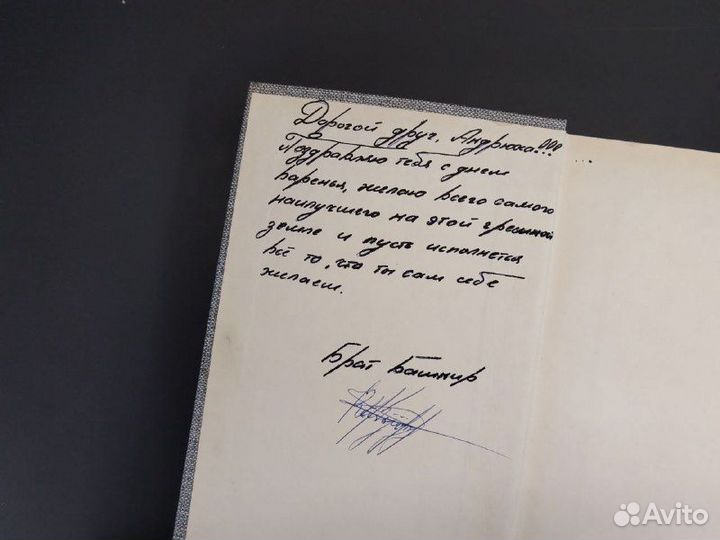 Дорогой друг, Андрюха!!!
Поздравляю тебя с днем
варенья, желаю всего самого
наилучшего на этой грешной
земле и пусть исполнется
всё то, что ты сам себе
желаеш.
Брат Башкир
Avito